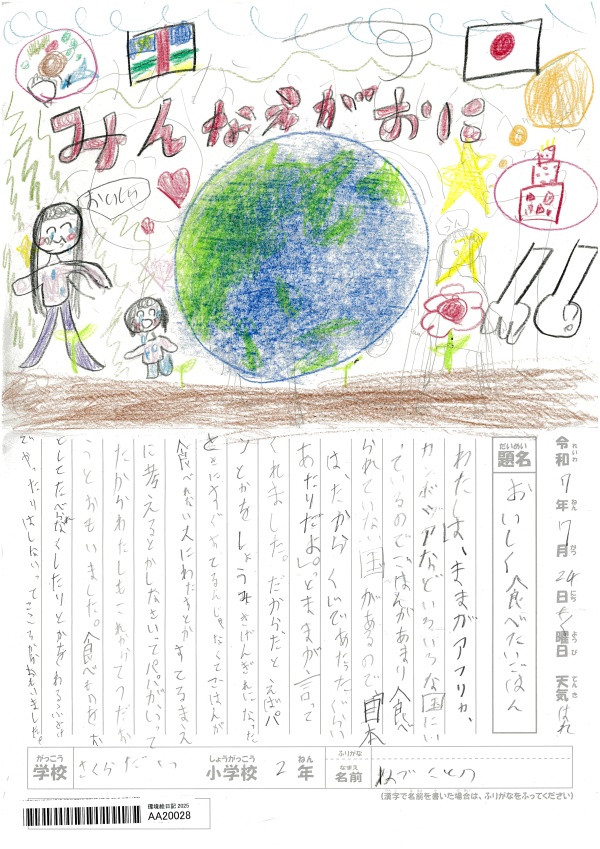 みんなえがおに
おいしい
令和7年7月24日もく曜日 天気 はれ
れいわ ねん がつ にち ようび てんき
だいめい
題名 おいしく食べたいごはん
わたしは、ままがアフリカ、
カンボジアなどいろいろな国にい
っているのでごはんがあまり食べ
られていない国があるので日本
は、たからくじであたったぐらい
あたりだよ。とままが言って
くれました。だからたとえばパ
ンとかをしょうみきげんぎれになった
とときにすぐすてるんじゃなくてごはんが
食べれない人にわたすとかすてるまえ
に考えるとかしなさいってパパがいって
たからわたしもこれからてつだお
ことおもいました。食べものをお
としてたべられなくしたりとかをわるふざけ
でや、たりはしないってこころからおもいました。
がっこう
学校 さくらだ
しょうがっこう
小学校
2
ねん
年
ふりがな
なまえ
名前
(漢字で名前を書いた場合は、ふりがなをふってください)
環境絵日記 2025
AA20028